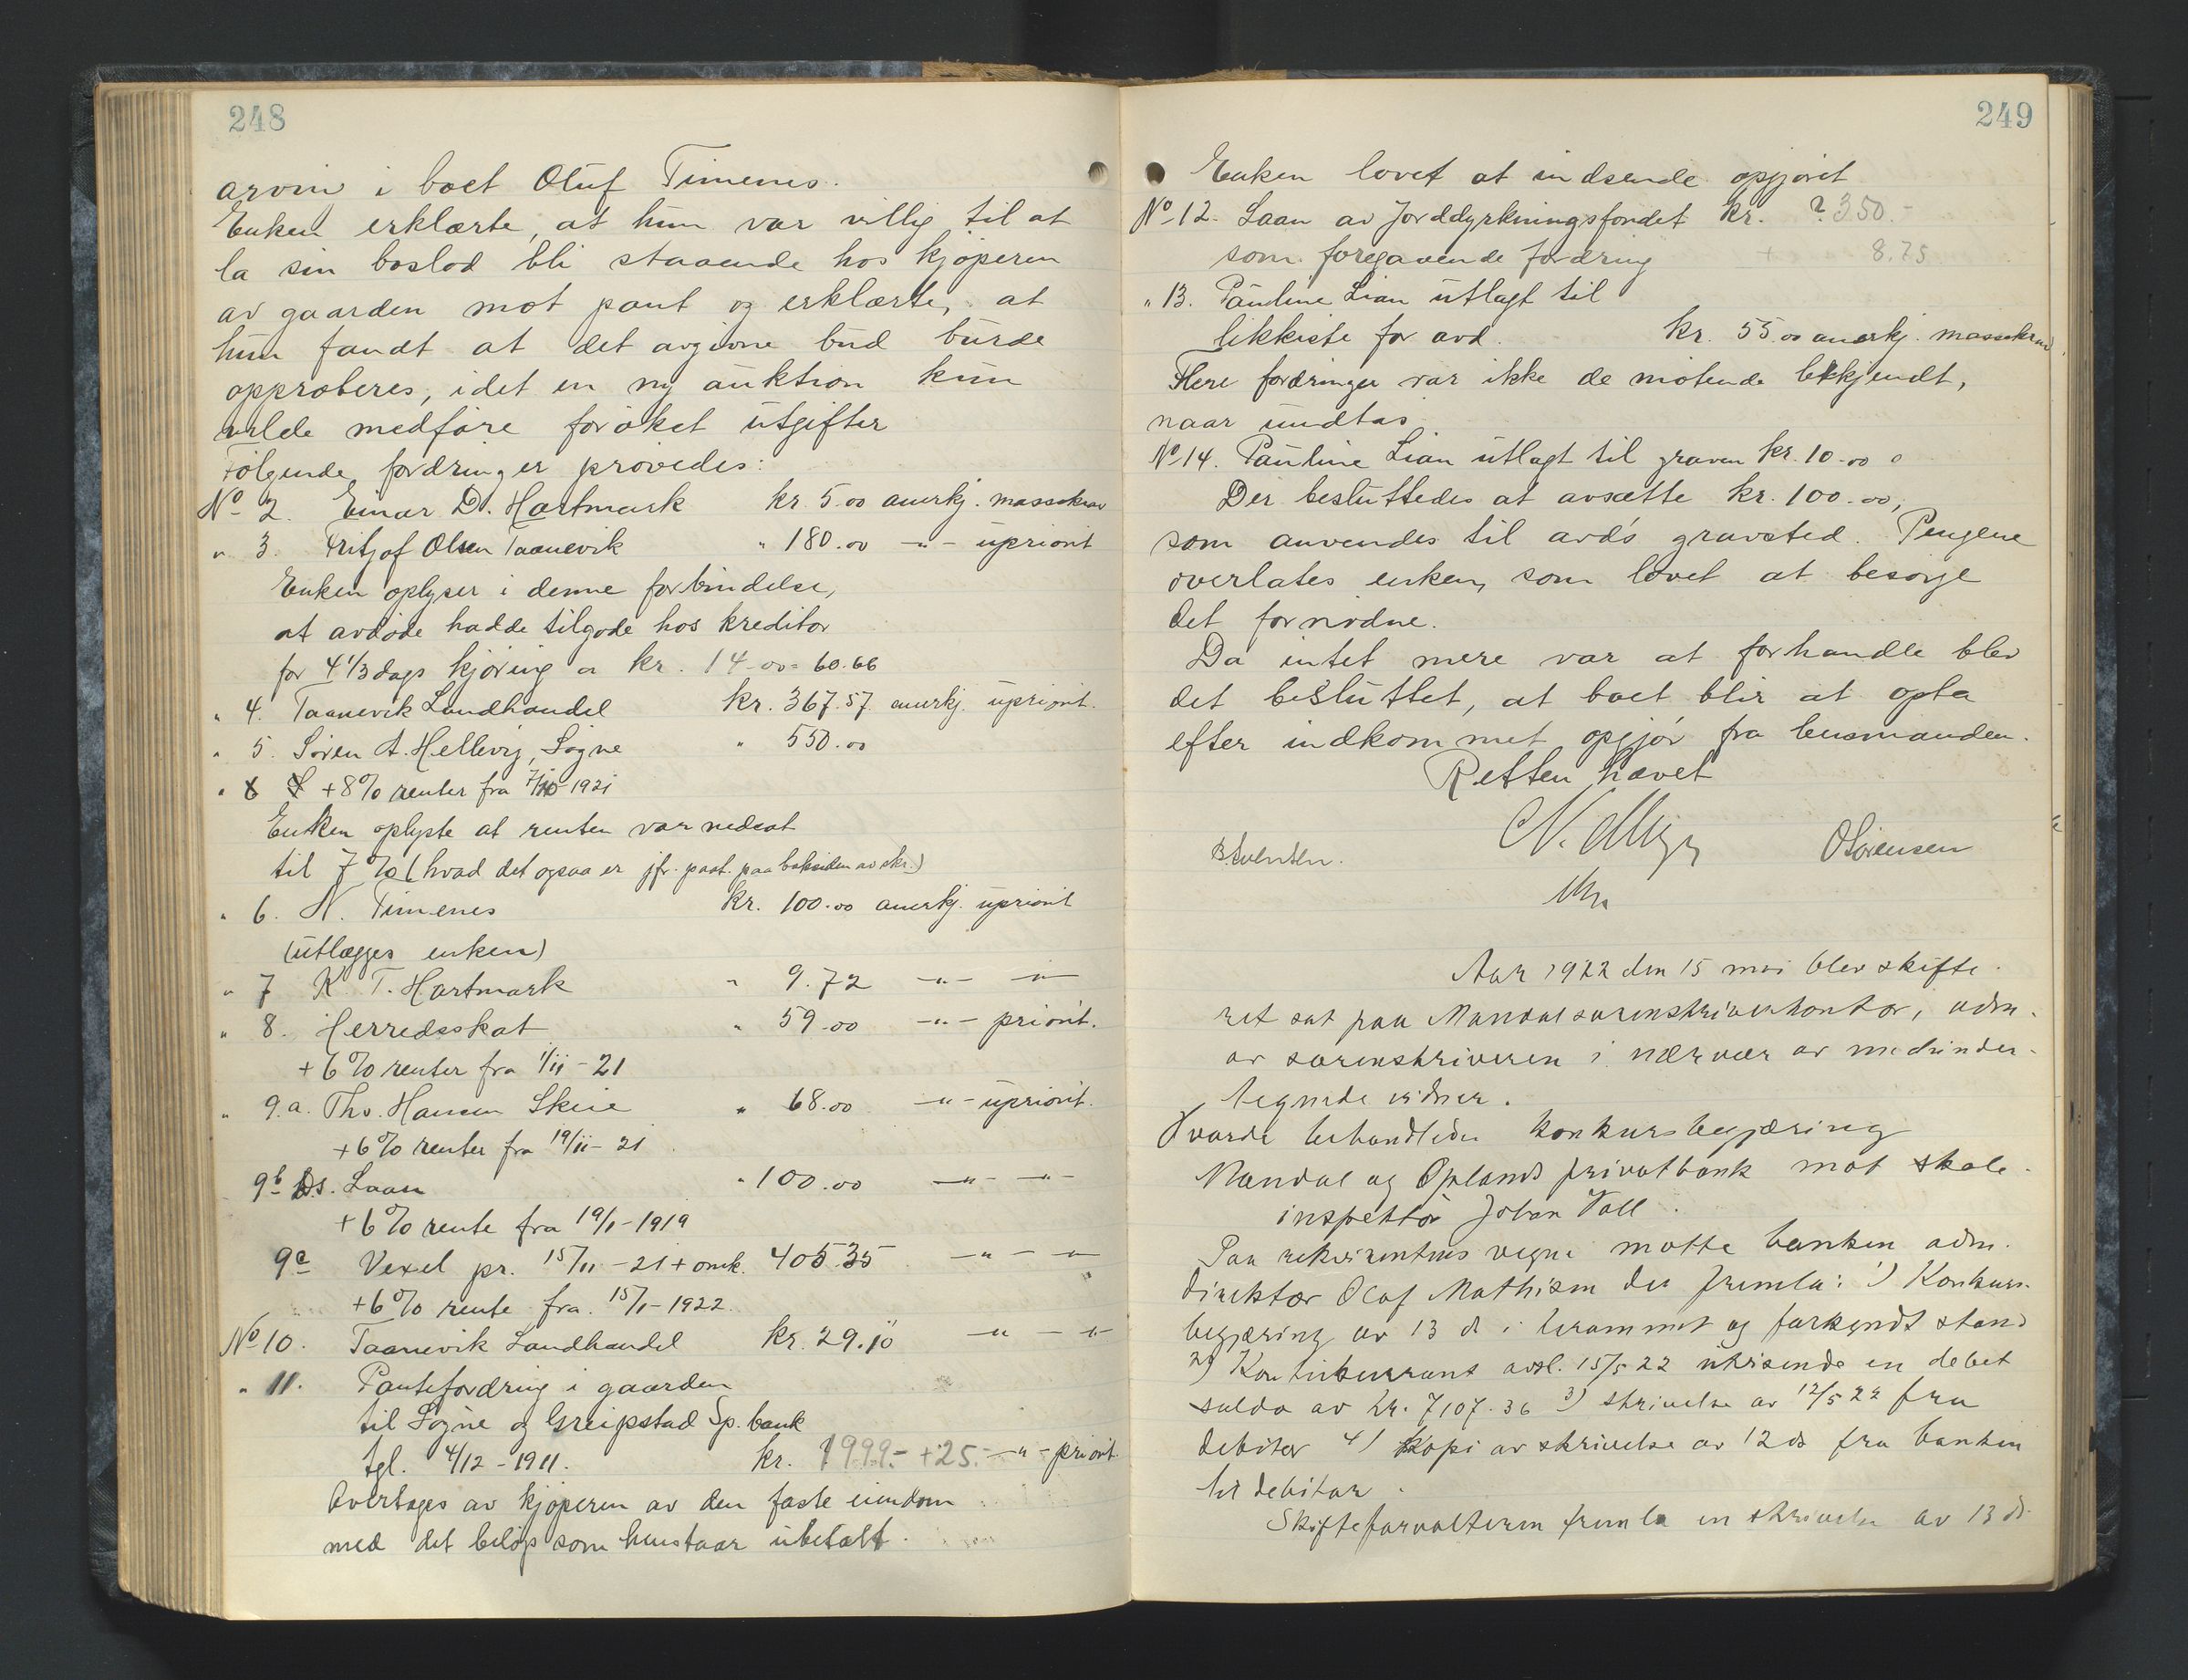 248
arving i boet Oluf Timenes.
Enken erklærte, at hun var villig til at
la sin boslod bli staaende hos kjøperen
av gaarden mot pant og erklærte, at
hun fandt at det avgivne bud burde
approberes, idet en ny auktion kun
vilde medføre forøket utgifter
Følgende fordringer prøvedes:
No 2. Einar D. Hartmark kr 5.00 anerkj. massekrav
" 3. Fritjof Olsen Taanevik " 180.00 -"- upriorit
Enken oplyser i denne forbindelse,
at avdøde hadde tilgode hos kreditor
for 4 1/3 dags kjøring a kr. 14.00 = 60.66
" 4. Taanevik Landhandel kr. 367.57. anerkj. upriorit.
" 5. Søren A. Hellevig, Søgne " 550.00
" 6 + 8% renter fra 7/10-1921
Enken oplyste at renten var nedsat
til 7% (hvad det ogsaa er jfr. paat. paa baksiden av skr.)
" 6. N. Timenes kr. 100.00 anerkj. upriorit
(utlægges enken)
" 7 K. T. Hartmark " 9.72 -"- -"-
" 8. Herredsskat " 59.00 -"- priorit.
+ 6% renter fra 1/11-21
" 9.a. Tho. Hansen Skeie " 68.00 -"- upriorit.
+ 6% renter fra 19/11-21
9b Ds. Laan " 100.00 -"- -"-
+ 6% rente fra 19/1-1919
9c Vexel pr. 15/11-21 + omk. 405.35 -"- -"-
+ 6% rente fra 15/1-1922.
No 10. Taanevik Landhandel kr. 29.10 -"- -"-
" 11. Pantefordring i gaarden
til Søgne og Greipstad Sp. bank
tgl. 4/12-1911. kr. 1999.- + 25.- -"- priorit
Overtages av kjøperen av den faste eiendom
med det beløp som henstaar ubetalt.
249
Enken lovet at indsende opgjøret
No 12. Laan av Jorddyrkningsfondet kr. ? 350.-
som foregaaende fordring + 8.75
" 13. Pauline Lian utlagt til
likkiste for avd. kr. 55.00 anerkj. massekrav
Flere fordringer var ikke de møtende bekkjendt,
naar undtas
No 14. Pauline Lian utlagt til graven kr. 10.00
Der besluttedes at avsætte kr. 100.00,
som anvendes til avd's gravsted. Pengene
overlates enken, som lovet at besørge
det fornødne.
Da intet mere var at forhandle blev
det besluttet, at boet blir at opta
efter indkommet opgjør fra lensmanden.
Retten hævet
OSørensen
Aar 1922 den 15 mai blev skifte-
ret sat paa Mandal sorenskriverkontor, adm.
av sorenskriveren i nærvær av medunder-
tegnede vidner.
Hvorda behandledes konkursbegjæring
Mandal og Oplands privatbank mot skole-
inspektør Johan Voll.
Paa rekvirentens vegne møtte banken adm.
direktør Olaf Mathisen der fremla: 1) Konkurs-
begjæring av 13 ds i berammet og forkyndt stand
2) Kontokurrant avsl. 15/5 22 utvisende en debet
saldo av kr. 7107.36 3) skrivelse av 12/5 22 fra
debitor 4) kopi av skrivelse av 12 ds fra banken
til debitor.
Skifteforvalteren fremla en skrivelse av 13 ds